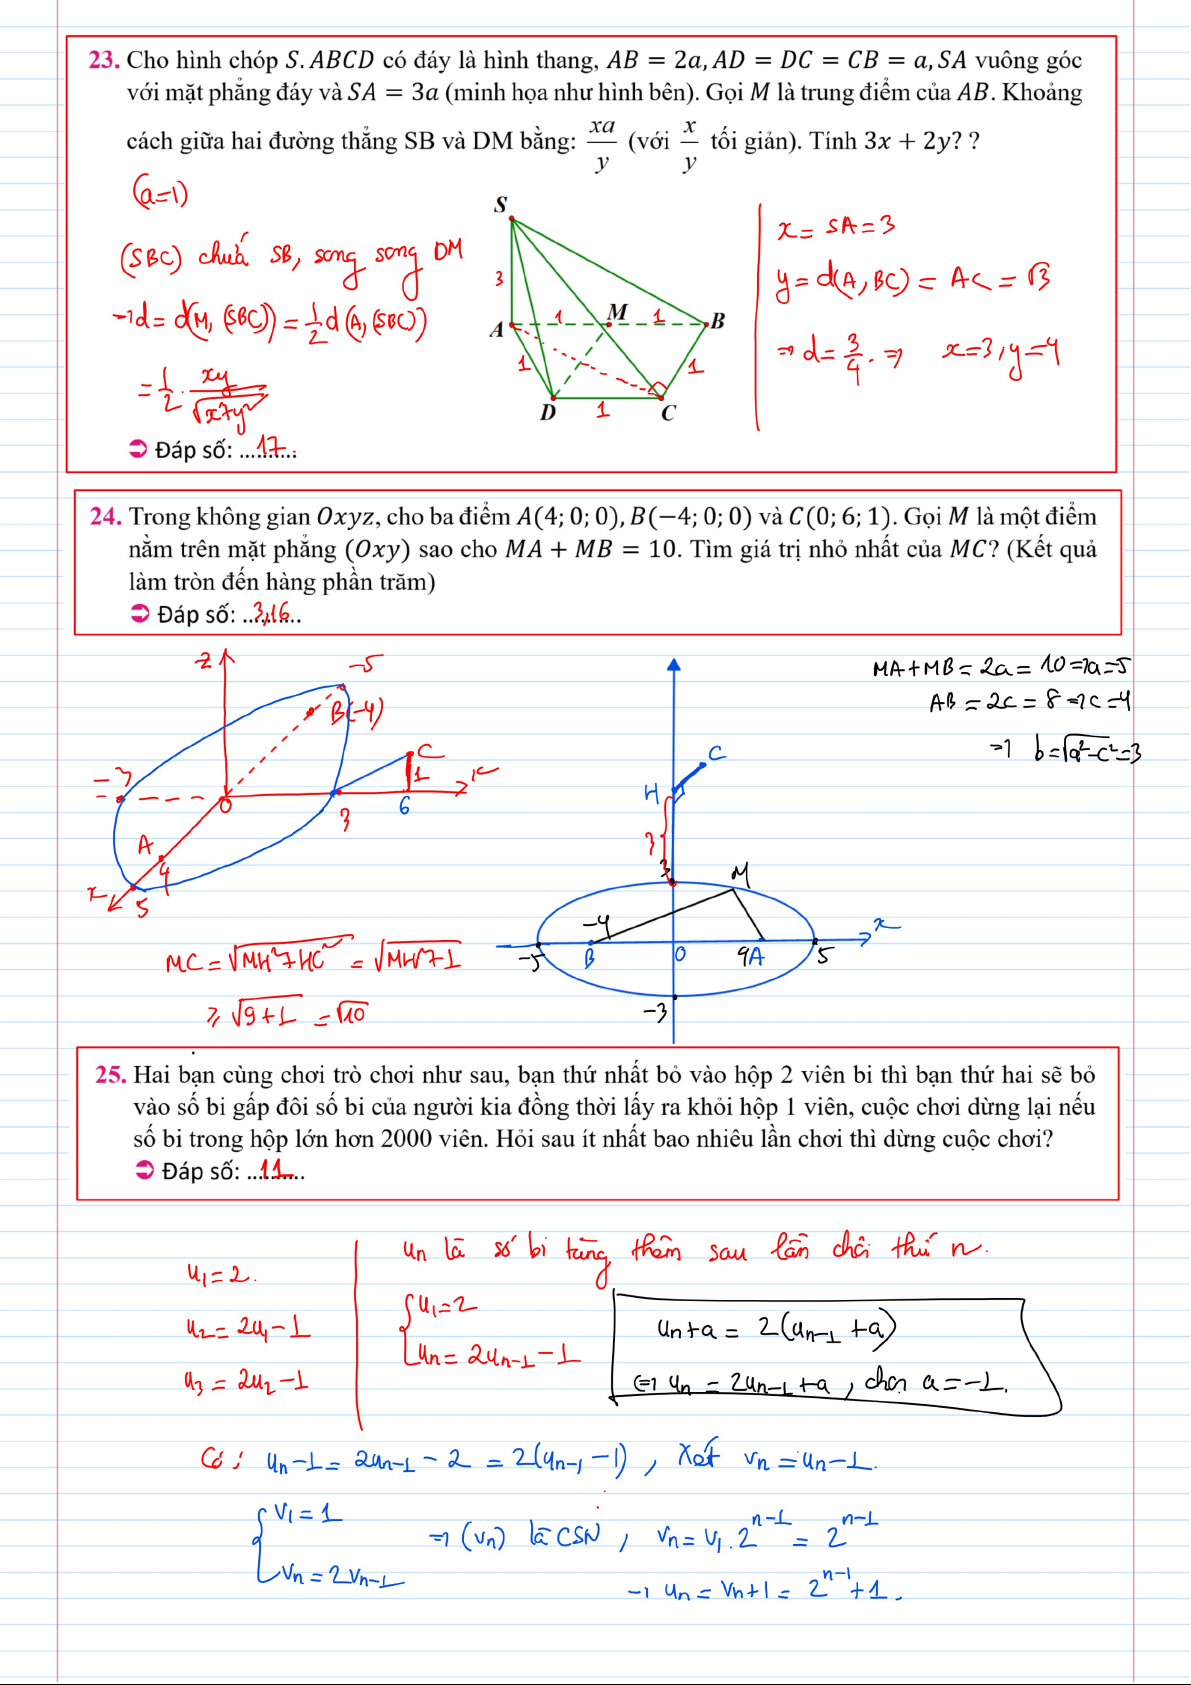 23. Cho hình chóp S.ABCD có đáy là hình thang, AB = 2a, AD = DC = CB = a, SA vuông góc
với mặt phẳng đáy và SA = 3a (minh họa như hình bên). Gọi M là trung điểm của AB. Khoảng
cách giữa hai đường thẳng SB và DM bằng: xa/y (với x/y tối giản). Tính 3x + 2y? ?
(a=1)
(SBC) chứa SB, song song DM
→ d = d(M, (SBC)) = 1/2 d(A, (SBC))
= 1/2 . xy/√(x²+y²)
S
3
A 1 M 1 B
1 1
D 1 C
x = SA = 3
y = d(A, BC) = AC = √3
⇒ d = 3/4 . ⇒ x=3, y=4
Đáp số: ...17...
24. Trong không gian Oxyz, cho ba điểm A(4; 0; 0), B(−4; 0; 0) và C(0; 6; 1). Gọi M là một điểm
nằm trên mặt phẳng (Oxy) sao cho MA + MB = 10. Tìm giá trị nhỏ nhất của MC? (Kết quả
làm tròn đến hàng phần trăm)
Đáp số: ...3,16...
z
-5
B(-4)
C
1
-3
0
3
6
A
4
x
5
MA+MB = 2a = 10 ⇒ a=5
AB = 2c = 8 ⇒ c=4
⇒ b = √(a²-c²) = 3
C
H
3
3
M
-4
x
-5 B 0 A 5
-3
MC = √(MH²+HC²) = √(MH²+1)
≥ √(9+1) = √10
25. Hai bạn cùng chơi trò chơi như sau, bạn thứ nhất bỏ vào hộp 2 viên bi thì bạn thứ hai sẽ bỏ
vào số bi gấp đôi số bi của người kia đồng thời lấy ra khỏi hộp 1 viên, cuộc chơi dừng lại nếu
số bi trong hộp lớn hơn 2000 viên. Hỏi sau ít nhất bao nhiêu lần chơi thì dừng cuộc chơi?
Đáp số: ...11...
u1 = 2.
u2 = 2u1 - 1
u3 = 2u2 - 1
un là số bi tăng thêm sau lần chơi thứ n.
{ u1 = 2
un = 2un-1 - 1
un + a = 2(un-1 + a)
⇔ un = 2un-1 + a, chọn a = -1.
Có: un - 1 = 2un-1 - 2 = 2(un-1 - 1), Xét vn = un - 1.
{ v1 = 1
vn = 2vn-1
⇒ (vn) là CSN, vn = v1 . 2^(n-1) = 2^(n-1)
→ un = vn + 1 = 2^(n-1) + 1.